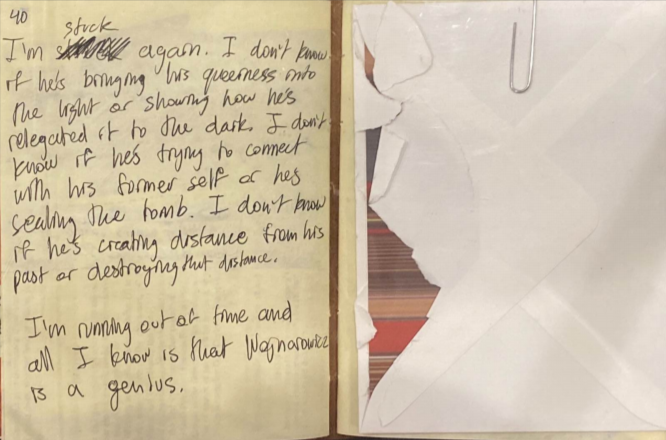 40
stuck
I'm again. I don't know
if he's bringing his queerness into
the light or showing how he's
relegated it to the dark. I don't
know if he's trying to connect
with his former self or he's
sealing the tomb. I don't know
if he's creating distance from his
past or destroying that distance.
I'm running out of time and
all I know is that Wojnarowicz
is a genius.